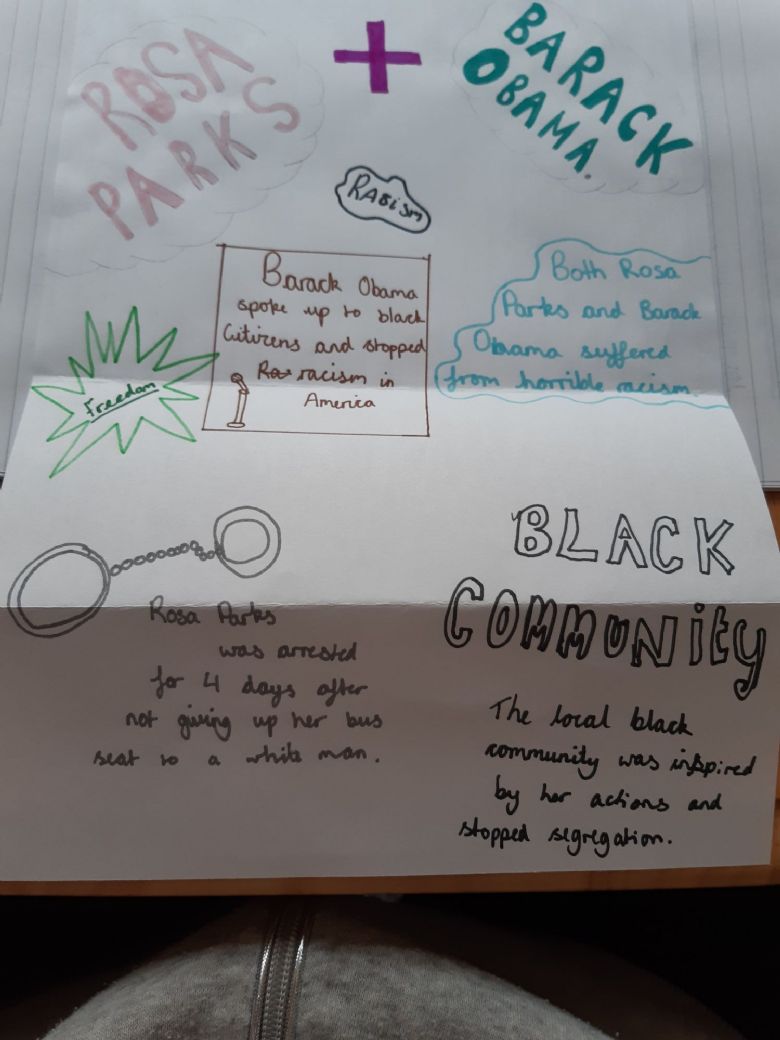 ROSA
PARKS
BARACK
OBAMA.
RACism
Barack Obama
spoke up to black
Citizens and stopped
racism in
America
Both Rosa
Parks and Barack
Obaama suffered
from horrible racism.
Freedom
Rosa Parks
was arrested
for 4 days after
not giving up her bus
seat to a white man.
BLACK
COMMUNity
The local black
community was inspired
by her actions and
stopped segregation.